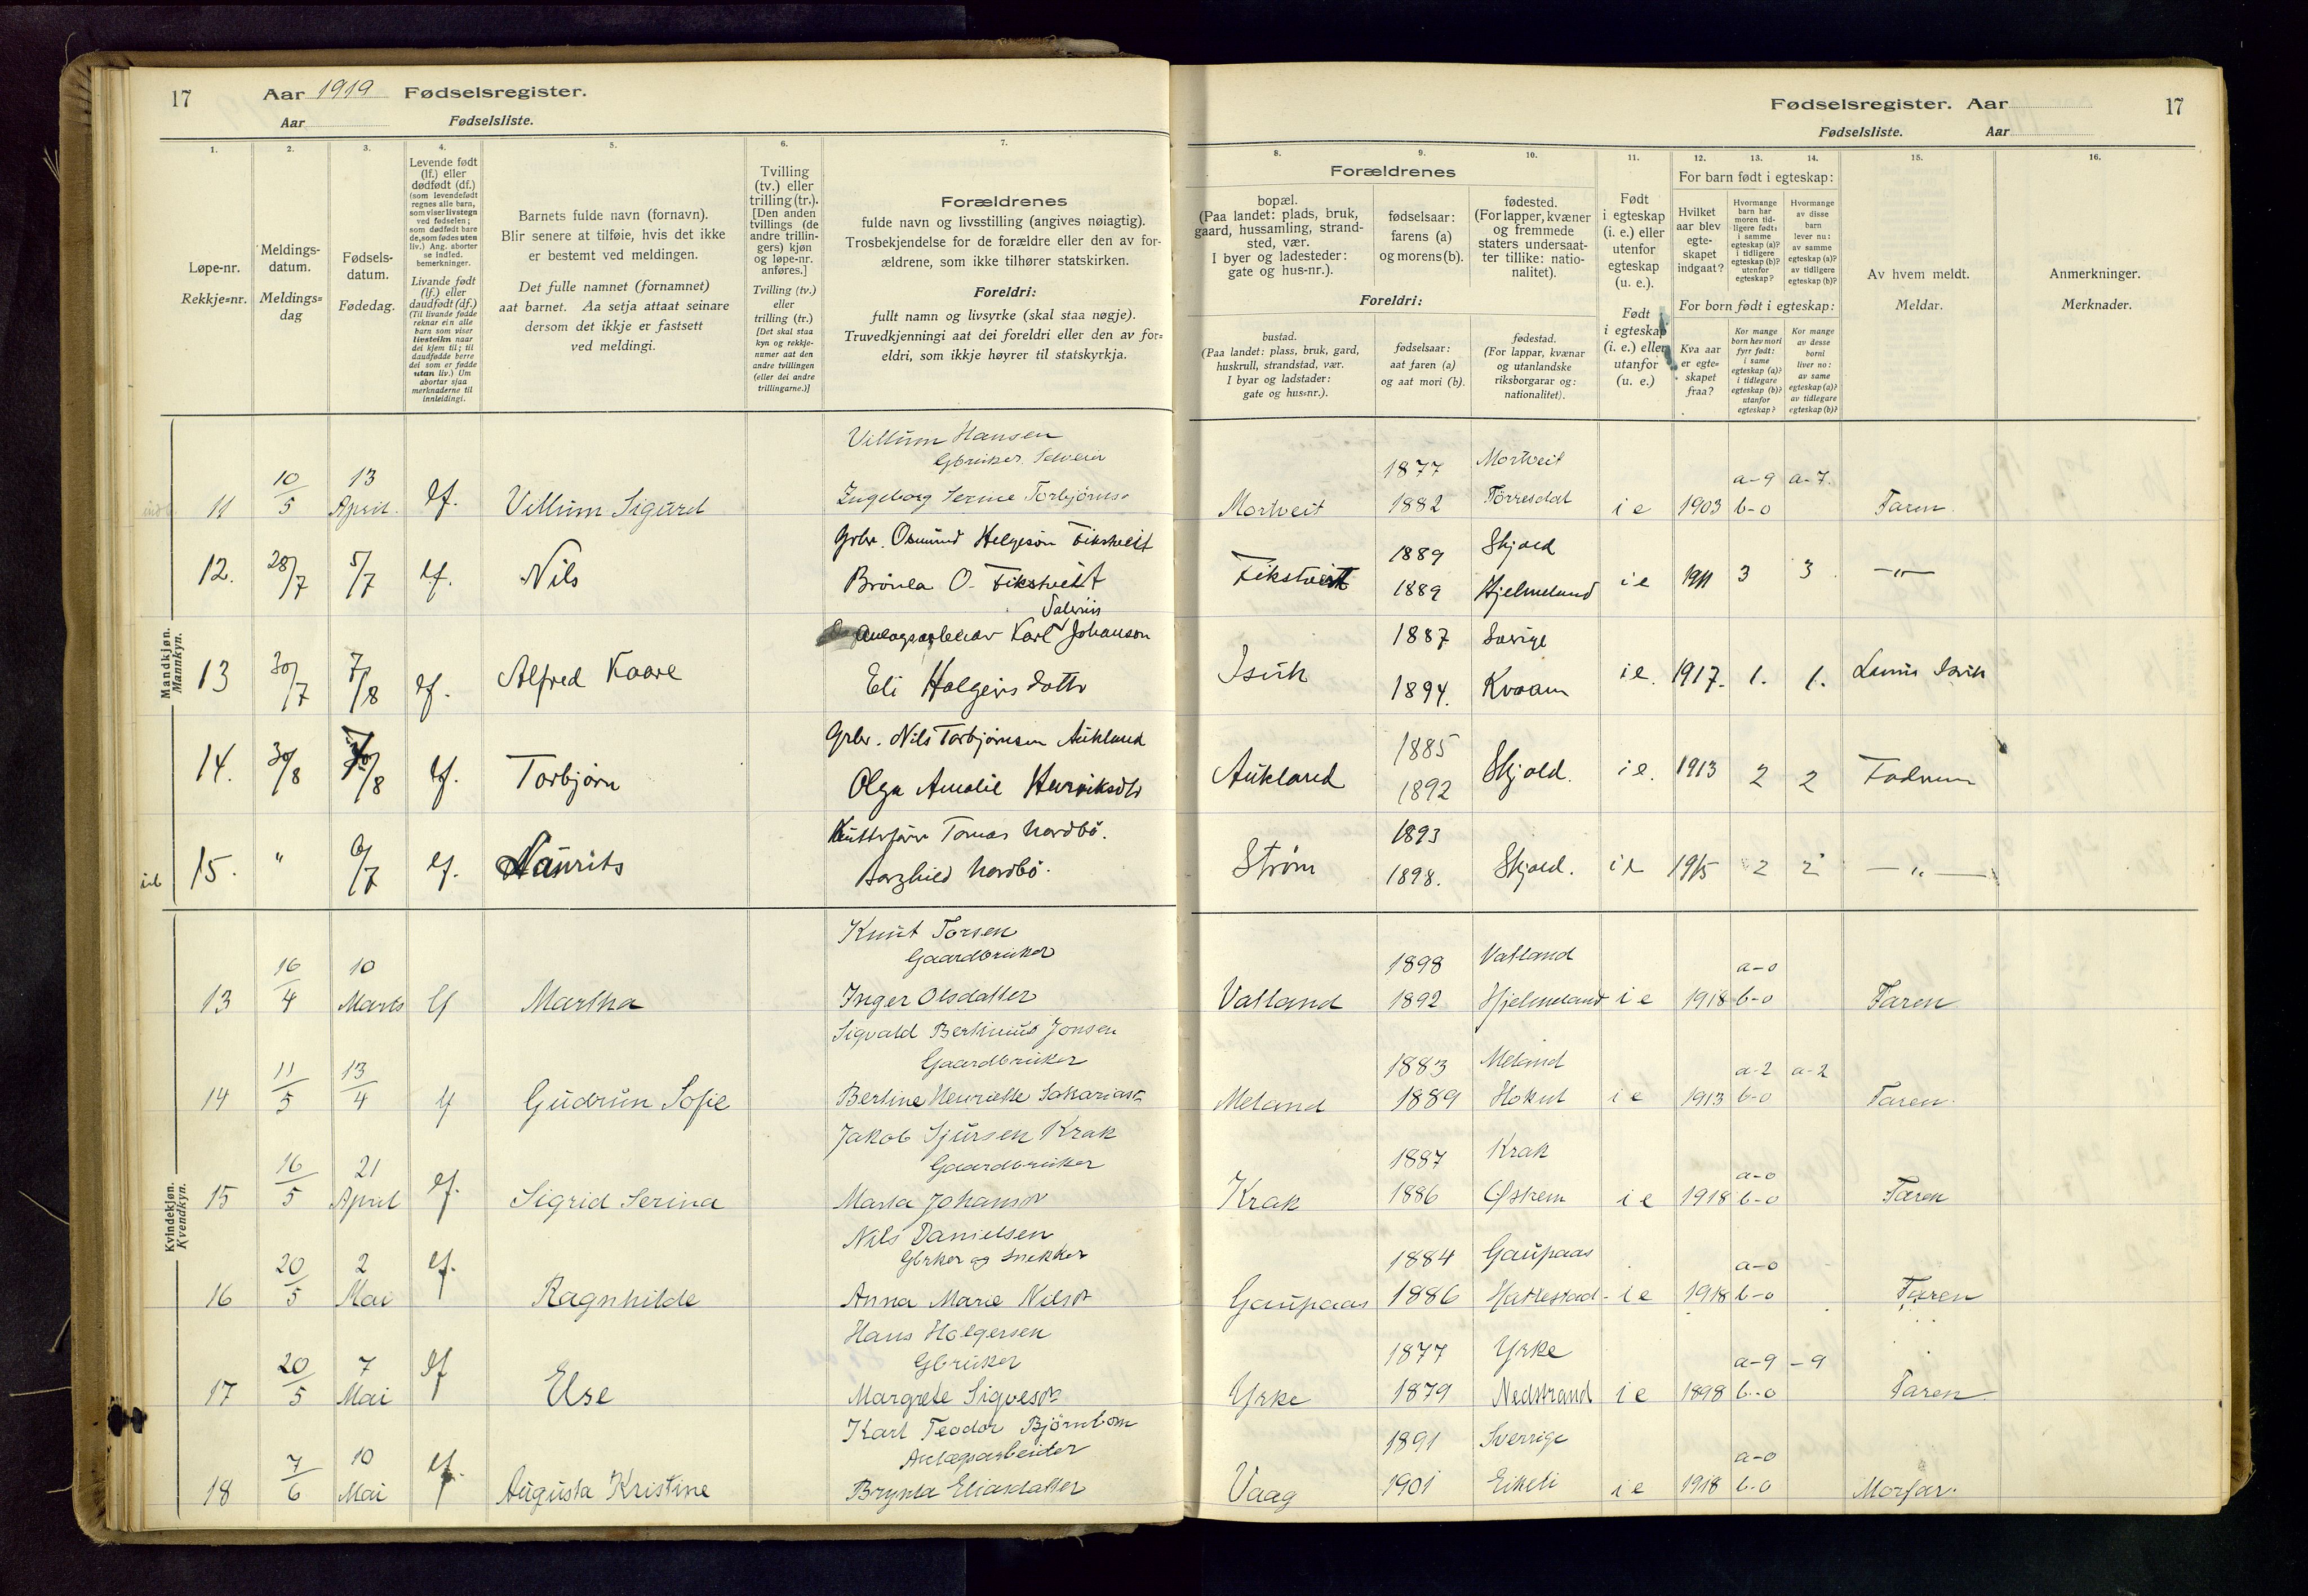 17 Aar 1919 Fødselsregister.
Aar Fødselsliste.
1.
2.
3.
4.
5.
6.
7.
Løpe-nr.
Rekkje=nr.
Meldings-
datum.
Meldings=
dag
Fødsels-
datum.
Fødedag.
Levende født
(lf.) eller
dødfødt (df.)
(som levendefødt
regnes alle barn,
som viser livstegn
ved fødselen;
som dødfødt bare
de, som fødes uten
liv.) Ang. aborter
se indled.
bemerkninger.
Livande født
(lf.) eller
daudfødt (df.)
(Til livande fødde
reknar ein alle
barn som viser
livsteikn naar
dei kjem til; til
daudfødde berre
dei som er fødde
utan liv.) Um
abortar sjaa
merknaderne til
innleidingi.
Barnets fulde navn (fornavn).
Blir senere at tilføie, hvis det ikke
er bestemt ved meldingen.
Det fulle namnet (fornamnet)
aat barnet. Aa setja attaat seinare
dersom det ikkje er fastsett
ved meldingi.
Tvilling
(tv.) eller
trilling (tr.).
[Den anden
tvillings (de
andre trillin-
gers) kjøn
og løpe-nr.
anføres.]
Tvilling (tv.)
eller
trilling (tr.)
[Det skal staa
kyn og rekkje-
numer aat den
andre tvillingen
(eller dei andre
trillingarne.)]
Forældrenes
fulde navn og livsstilling (angives nøiagtig).
Trosbekjendelse for de forældre eller den av for-
ældrene, som ikke tilhører statskirken.
Foreldri:
fullt namn og livsyrke (skal staa nøgje).
Truvedkjenningi aat dei foreldri eller den av for=
eldri, som ikkje høyrer til statskyrkja.
Mandkjøn.
Mannkyn.
Villum Hansen
Gbruker
11 10/5 13 April. lf. Villum Sigurd Ingeborg Serine Torbjørns.
Grbr. Osmund Helgesøn Fikstveit
12. 28/7 5/7 lf. Nils O. Fikstveit
Karl Johanson
13 30/7 7/8 lf. Alfred Kaare Eli Holgeirsdottr
Grbr. Nils Torbjørnsen Aukland
14. 30/8 lf. Torbjørn Olga Amalie Henriksdtr
Tomas Nordbø.
15. " 6/7 lf. Laurits Nordbø.
Kvindekjøn.
Kvendkyn.
Knut Torsen
Gaardbruker
13 16/4 10 Marts lf Martha Inger Olsdatter
Sigvald Bertinius Jonsen
Gaardbruker
14 11/5 13/4 lf Gudrun Sofie Bertine Henriette Sakariasdt
Jakob Sjursen Krak
Gaardbruker
15 16/5 21 April lf. Sigrid Serina Marta Johansdt
Nils Danielsen
Gbrker og Snekker
16 20/5 2 Mai lf. Ragnhilde Anna Marie Nilsdt
Hans Holgersen
Gbruker
17 20/5 7 Mai lf Else Margrete Sigvesdt
Karl Teodor Bjørnbom
Anlægsarbeider
18 7/6 10 Mai lf. Augusta Kristine Brynla Eliasdatter
Fødselsregister. Aar 17
Fødselsliste. Aar
8.
9.
10.
11.
12.
13.
14.
15.
16.
Forældrenes
bopæl.
(Paa landet: plads, bruk,
gaard, hussamling, strand-
sted, vær.
I byer og ladesteder:
gate og hus-nr.).
Foreldri:
bustad.
(Paa landet: plass, bruk, gard,
huskrull, strandstad, vær.
I byar og ladstader:
gate og hus=nr.).
fødselsaar:
farens (a)
og morens (b).
fødselsaar:
aat faren (a)
og aat mori (b).
fødested.
(For lapper, kvæner
og fremmede
staters undersaat-
ter tillike: natio-
nalitet).
fødestad.
(For lappar, kvænar
og utanlandske
riksborgarar og:
nationalitet).
Født
i egteskap
(i. e.) eller
utenfor
egteskap
(u. e.).
Født
i egteskap
(i. e.) eller
utanfor
egteskap
(u. e.)
For barn født i egteskap:
Hvilket
aar blev
egte-
skapet
indgaat?
Hvormange
barn har
moren tid-
ligere født:
i samme
egteskap (a)?
i tidligere
egteskap (b)?
utenfor
egteskap?
Hvormange
av disse
barn
lever nu:
av samme
egteskap (a)?
av tidligere
egteskap (b)?
For born født i egteskap:
Kva aar
er egte=
skapet
fraa?
Kor mange
born hev mori
fyrr født:
i same
egteskap (a)?
i tidlegare
egteskap (b)?
utanfor
egteskap?
Kor mange
av desse
borni
liver no:
av same
egteskap (a)?
av tidlegare
egteskap (b)?
Av hvem meldt.
Meldar.
Anmerkninger.
Merknader.
1877 Mortveit a-9 a-7.
Mortveit 1882 Tørresdal i e 1903 b-0 Faren.
1889 Skjold
Fikstveit 1889 Hjelmeland i e 1911 3 3. —"—
1887 Sverige
Isvik 1894. Kvaam i e. 1917. 1. 1. Isvik
1885
Aukland 1892 Skjold. i e. 1913 2 2 Fadren
1893
Strøm 1898. Skjold. i e 1915 2 2 —"—
1898 Vatland a-0
Vatland 1892 Hjelmeland i e 1918 b-0 Faren
1883 Meland a-2 a-2
Meland 1889 i e 1913 b-0 Faren.
1887 Krak a-0
Krak 1886 Østrem i e 1918 b-0 Faren
1884 Gaupaas a-0
Gaupaas 1886 Hattestad i e 1918 b-0 Faren
1877 Yrke a-9 -9
Yrke 1879 Nedstrand i e 1898 b-0 Faren
1891 Sverrige a-0
Vaag 1901 Eikeli i e 1918 b-0 Morfar.